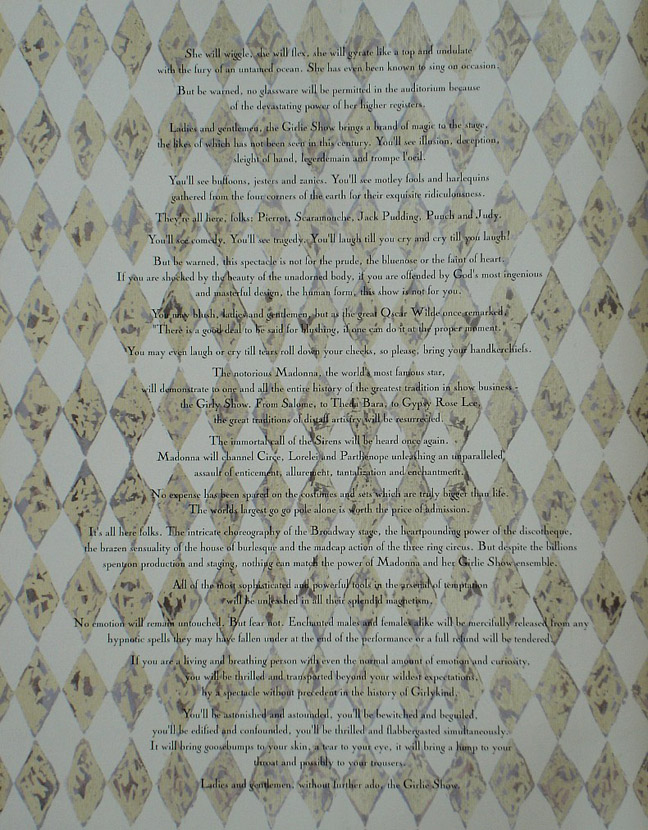 She will wiggle, she will flex, she will gyrate like a top and undulate
with the fury of an untamed ocean. She has even been known to sing on occasion.
But be warned, no glassware will be permitted in the auditorium because
of the devastating power of her higher registers.
Ladies and gentlemen, the Girlie Show brings a brand of magic to the stage,
the likes of which has not been seen in this century. You'll see illusion, deception,
sleight of hand, legerdemain and trompe l'oeil.
You'll see buffoons, jesters and zanies. You'll see motley fools and harlequins
gathered from the four corners of the earth for their exquisite ridiculousness.
They're all here, folks: Pierrot, Scaramouche, Jack Pudding, Punch and Judy.
You'll see comedy. You'll see tragedy. You'll laugh till you cry and cry till you laugh!
But be warned, this spectacle is not for the prude, the bluenose or the faint of heart.
If you are shocked by the beauty of the unadorned body, if you are offended by God's most ingenious
and masterful design, the human form, this show is not for you.
You may blush, ladies and gentlemen, but as the great Oscar Wilde once remarked,
"There is a good deal to be said for blushing, if one can do it at the proper moment.
You may even laugh or cry till tears roll down your cheeks, so please, bring your handkerchiefs.
The notorious Madonna, the world's most famous star,
will demonstrate to one and all the entire history of the greatest tradition in show business -
the Girly Show. From Salome, to Theda Bara, to Gypsy Rose Lee,
the great traditions of distaff artistry will be resurrected.
The immortal call of the Sirens will be heard once again.
Madonna will channel Circe, Lorelei and Parthenope unleashing an unparalleled
assault of enticement, allurement, tantalization and enchantment.
No expense has been spared on the costumes and sets which are truly bigger than life.
The worlds largest go go pole alone is worth the price of admission.
It's all here folks. The intricate choreography of the Broadway stage, the heartpounding power of the discotheque,
the brazen sensuality of the house of burlesque and the madcap action of the three ring circus. But despite the billions
spent on production and staging, nothing can match the power of Madonna and her Girlie Show ensemble.
All of the most sophisticated and powerful tools in the arsenal of temptation
will be unleashed in all their splendid magnetism.
No emotion will remain untouched. But fear not. Enchanted males and females alike will be mercifully released from any
hypnotic spells they may have fallen under at the end of the performance or a full refund will be tendered.
If you are a living and breathing person with even the normal amount of emotion and curiosity,
you will be thrilled and transported beyond your wildest expectations,
by a spectacle without precedent in the history of Girlykind.
You'll be astonished and astounded, you'll be bewitched and beguiled,
you'll be edified and confounded, you'll be thrilled and flabbergasted simultaneously.
It will bring goosebumps to your skin, a tear to your eye, it will bring a lump to your
throat and possibly to your trousers.
Ladies and gentlemen, without further ado, the Girlie Show.